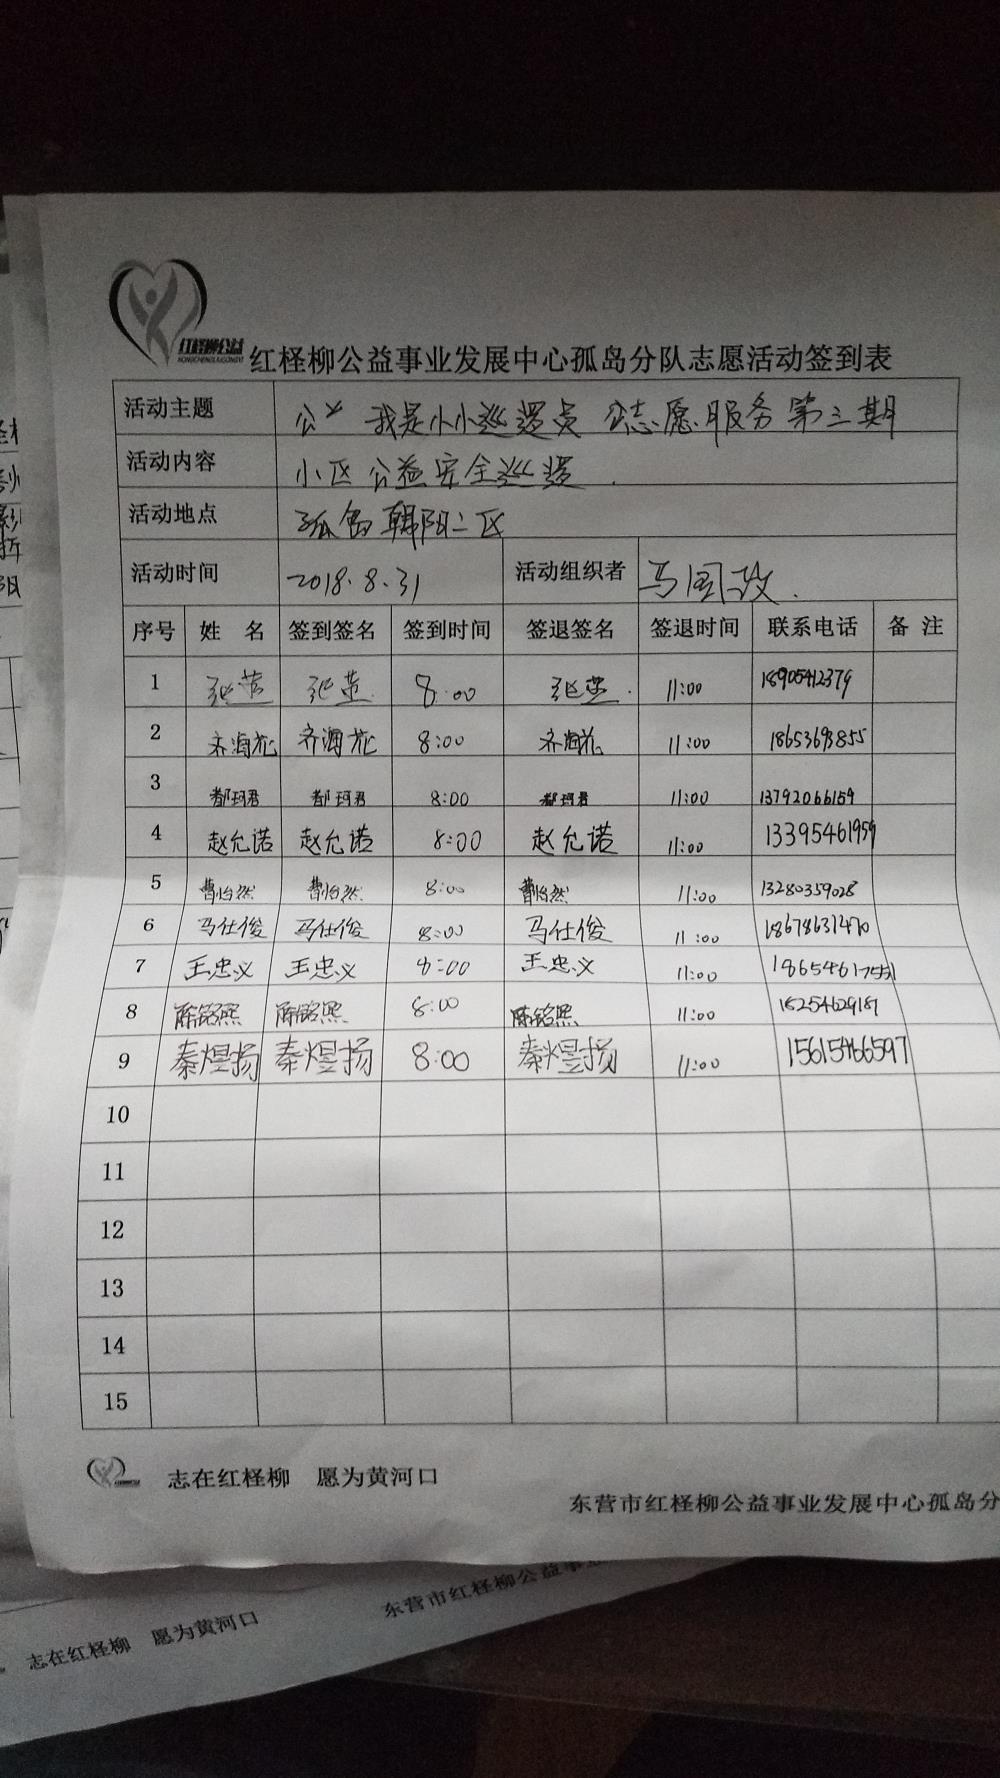 红柽柳公益
红柽柳公益事业发展中心孤岛分队志愿活动签到表
活动主题 公益 我是小小巡逻员 公志愿服务第三期
活动内容 小区公益安全巡逻.
活动地点 孤岛朝阳二区
活动时间 2018.8.31 活动组织者
序号 姓 名 签到签名 签到时间 签退签名 签退时间 联系电话 备 注
1 张莹 张莹 8:00 张莹 11:00 18905412379
2 齐海花 齐海花 8:00 齐海花 11:00 18653693855
3 都珂君 都珂君 8:00 都珂君 11:00 13792066159
4 赵允诺 赵允诺 8:00 赵允诺 11:00 13395461959
5 曹怡然 曹怡然 8:00 曹怡然 11:00 13280359028
6 马仕俊 马仕俊 8:00 马仕俊 11:00 18678631470
7 王忠义 王忠义 8:00 王忠义 11:00 18654617551
8 陈铭熙 陈铭熙 8:00 陈铭熙 11:00 18254629187
9 秦煜扬 秦煜扬 8:00 秦煜扬 11:00 15615466597
10
11
12
13
14
15
志在红柽柳 愿为黄河口
东营市红柽柳公益事业发展中心孤岛分
东营市红柽柳公益事
志在红柽柳 愿为黄河口